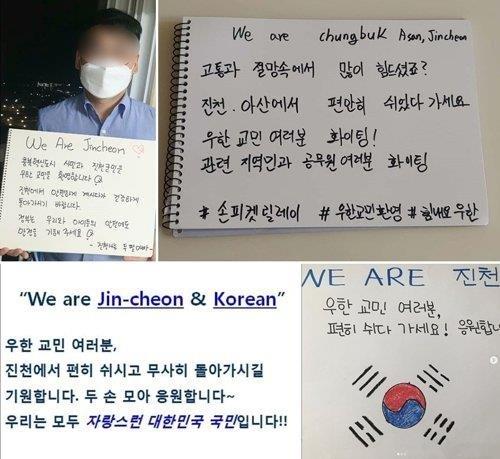 We Are Jincheon
충북혁신도시 서민과 진천군민은
우한 교민을 환영합니다
진천에서 안전하게 계시다가 건강하게
돌아가시기 바랍니다.
정부는 우리와 아이들의 안전에도
만전을 기해 주세요
We are chungbuk Asan, Jincheon
고통과 절망속에서 많이 힘드셨죠?
진천. 아산에서 편안히 쉬있다 가세요
우한 교민 여러분 화이팅!
관련 지역민과 공무원 여러분 화이팅
#손피켓릴레이 #우한교민환영 #힘내요우한
“We are Jin-cheon & Korean”
우한 교민 여러분,
진천에서 편히 쉬시고 무사히 돌아가시길
기원합니다. 두 손 모아 응원합니다~
우리는 모두 자랑스런 대한민국 국민입니다!!
WE ARE 진천
우한 교민 여러분,
편히 쉬다 가세요! 응원합니